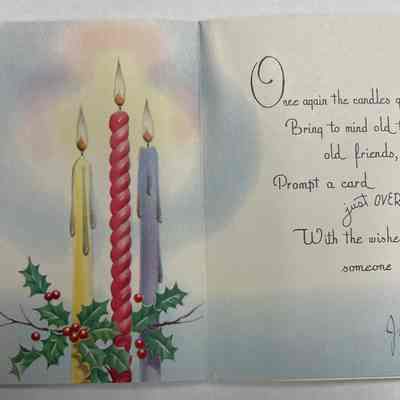 Once again the candles
Bring to mind old
old friends,
Prompt a card
just OVER
With the wishe
someone